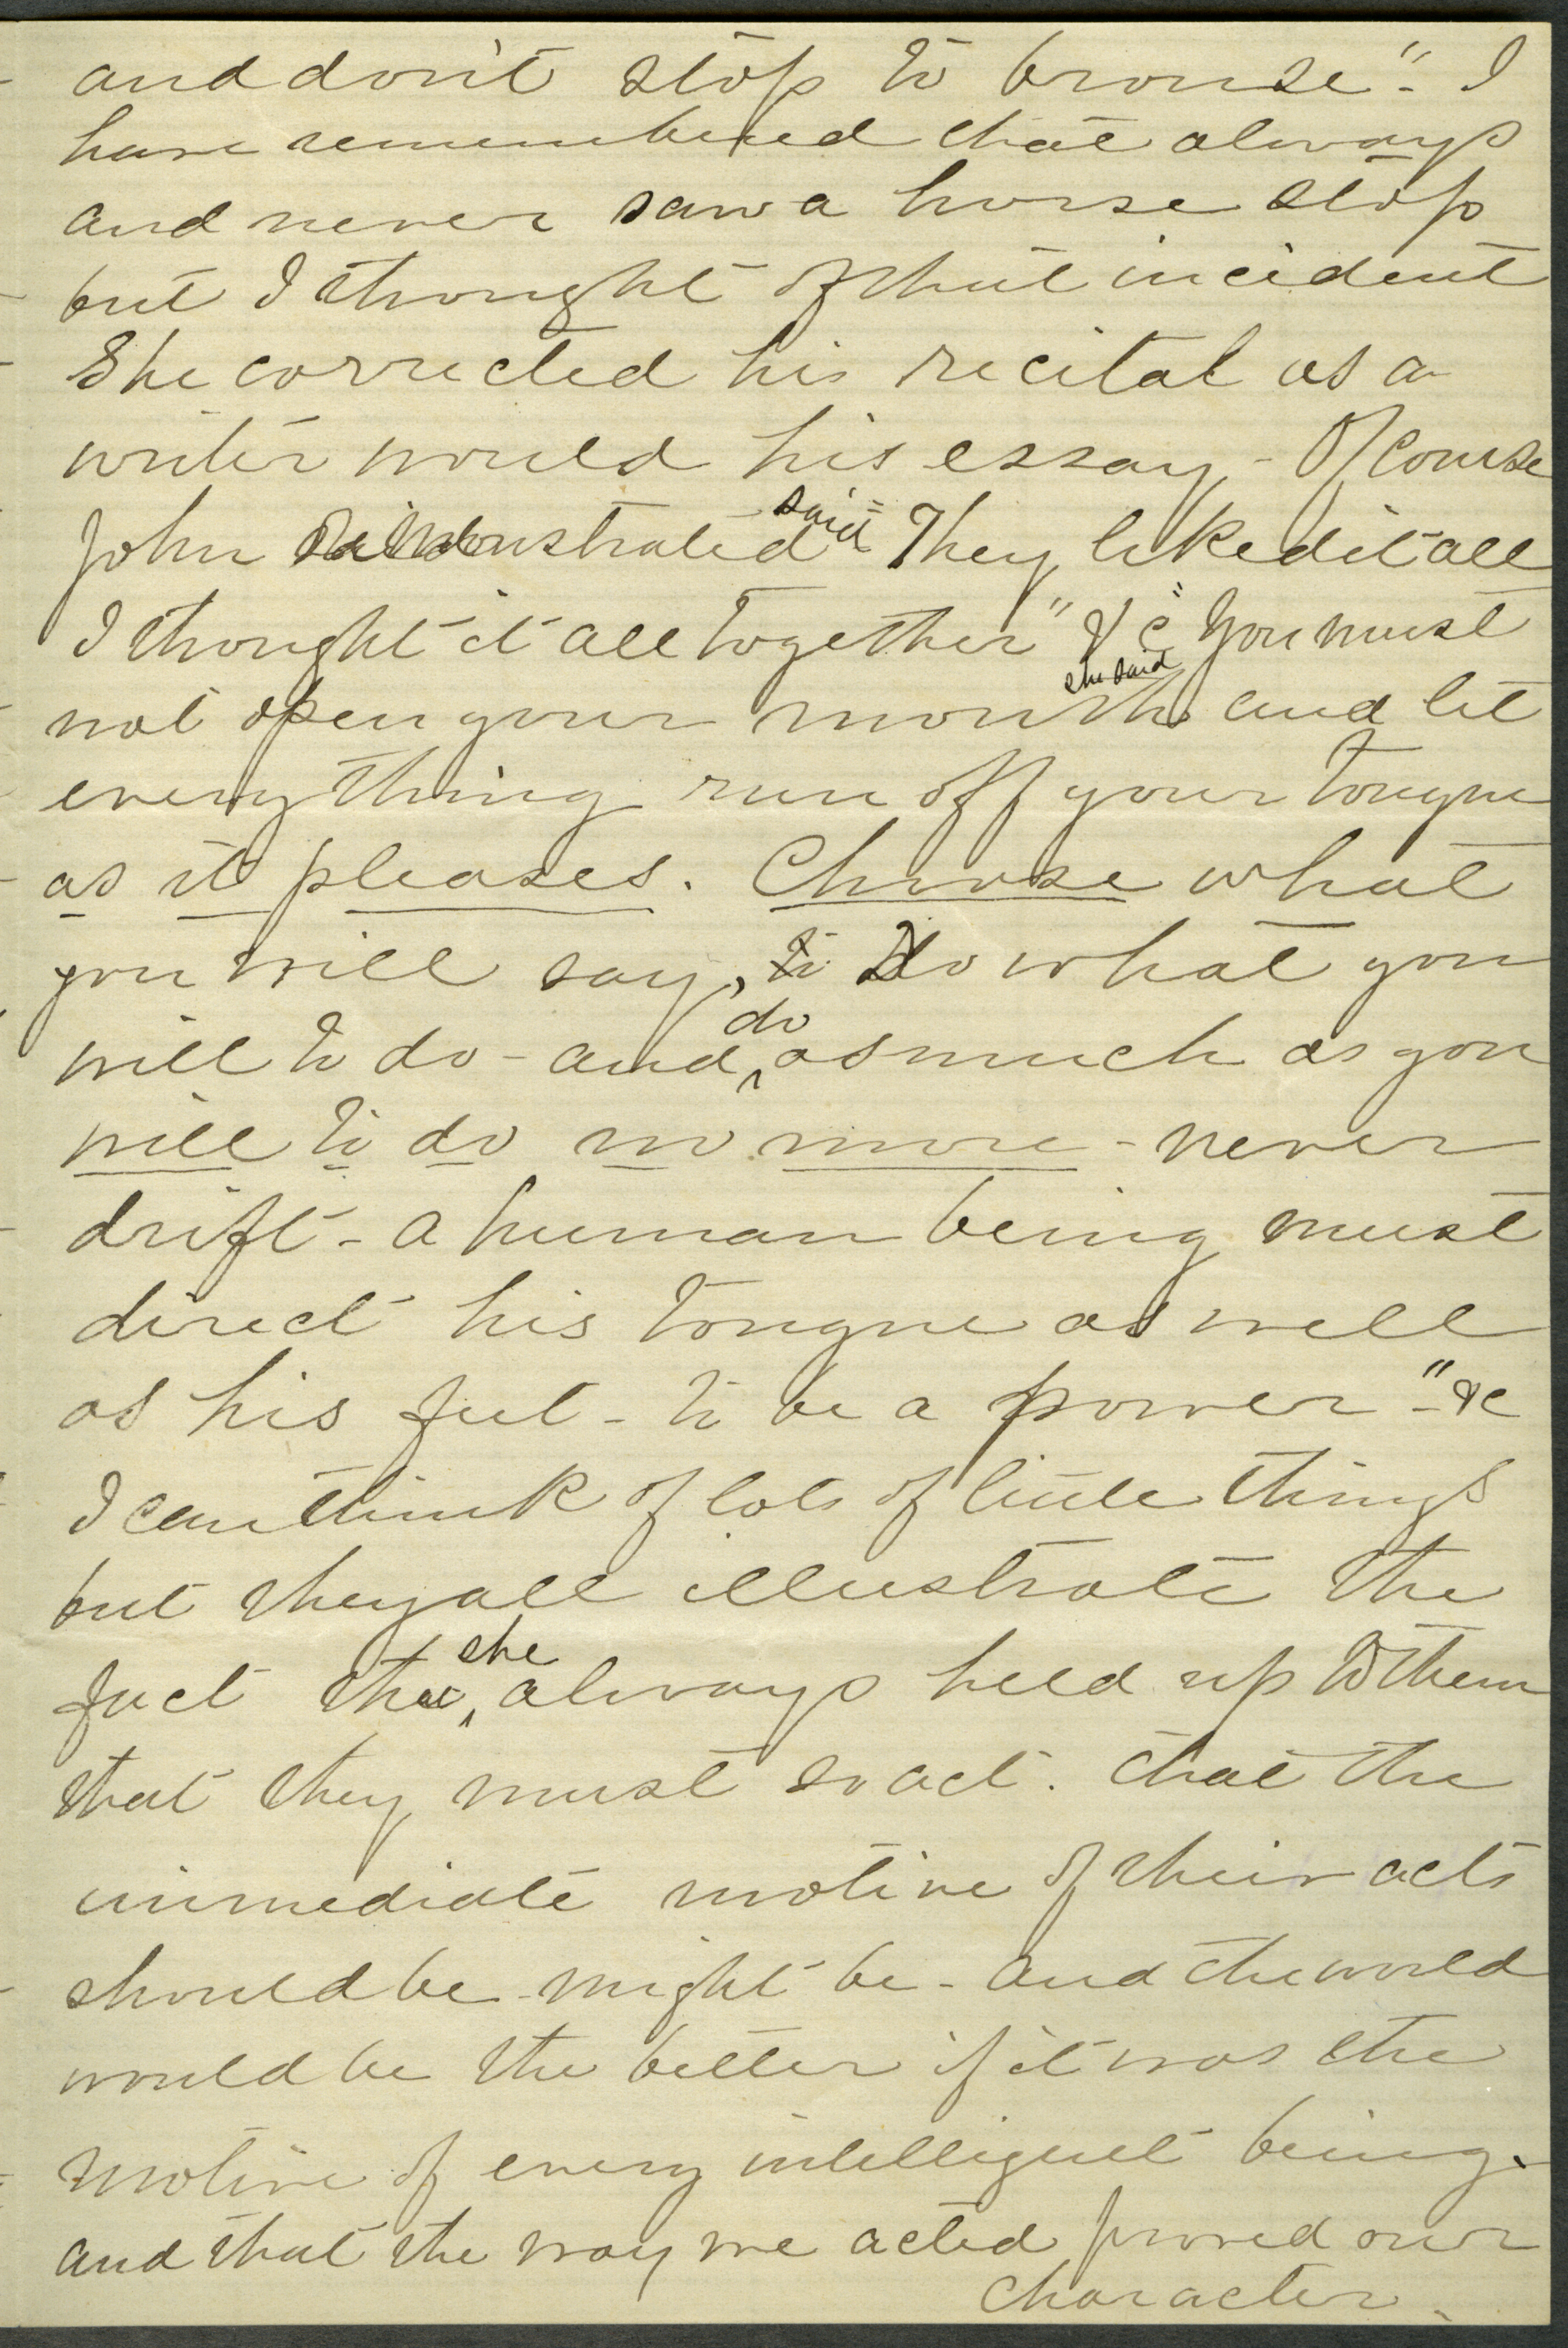 and don't stop to browse". I
have remembered that always
and never saw a horse stop
but I thought of that incident
She corrected his recital as a
writer would his essay - Of course
John demonstrated said "They liked it all
I thought it all together" &c "You must
not open your mouth she said and let
everything run off your tongue
as it pleases. Choose what
you will say, to Do what you
will to do - and do as much as you
will to do no more - never
drift - a human being must
direct his tongue as well
as his feet - to be a power" - &c
I can think of lots of little things
but they all illustrate the
fact that she always held up to them
that they must so act. that the
immediate motive of their acts
should be - might be - and the world
would be the better if it was the
motive of every intelligent being.
and that the way we acted proved our
character.